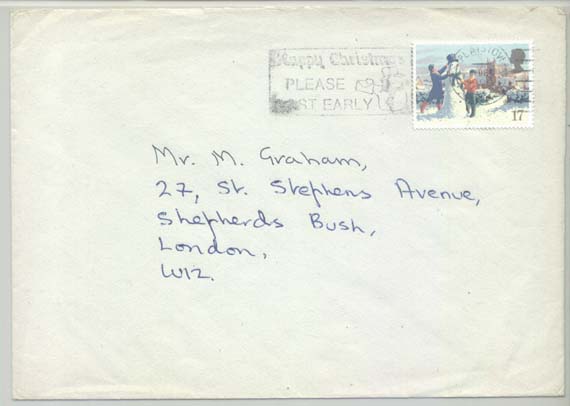 Happy Christmas
PLEASE
POST EARLY
PLAISTOW
17
Mr. M. Graham,
27, St. Stephens Avenue,
Shepherds Bush,
London,
W12.